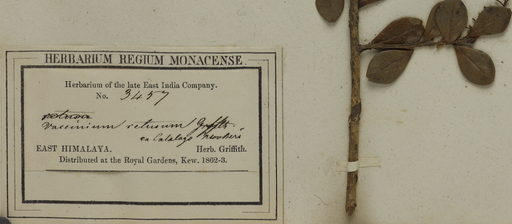 HERBARIUM REGIUM MONACENSE.
Herbarium of the late East India Company.
No. 3457
retusa
Vaccinium retusum Griffth.
ex Catalogo Hookeri
EAST HIMALAYA. Herb. Griffith.
Distributed at the Royal Gardens, Kew. 1862-3.